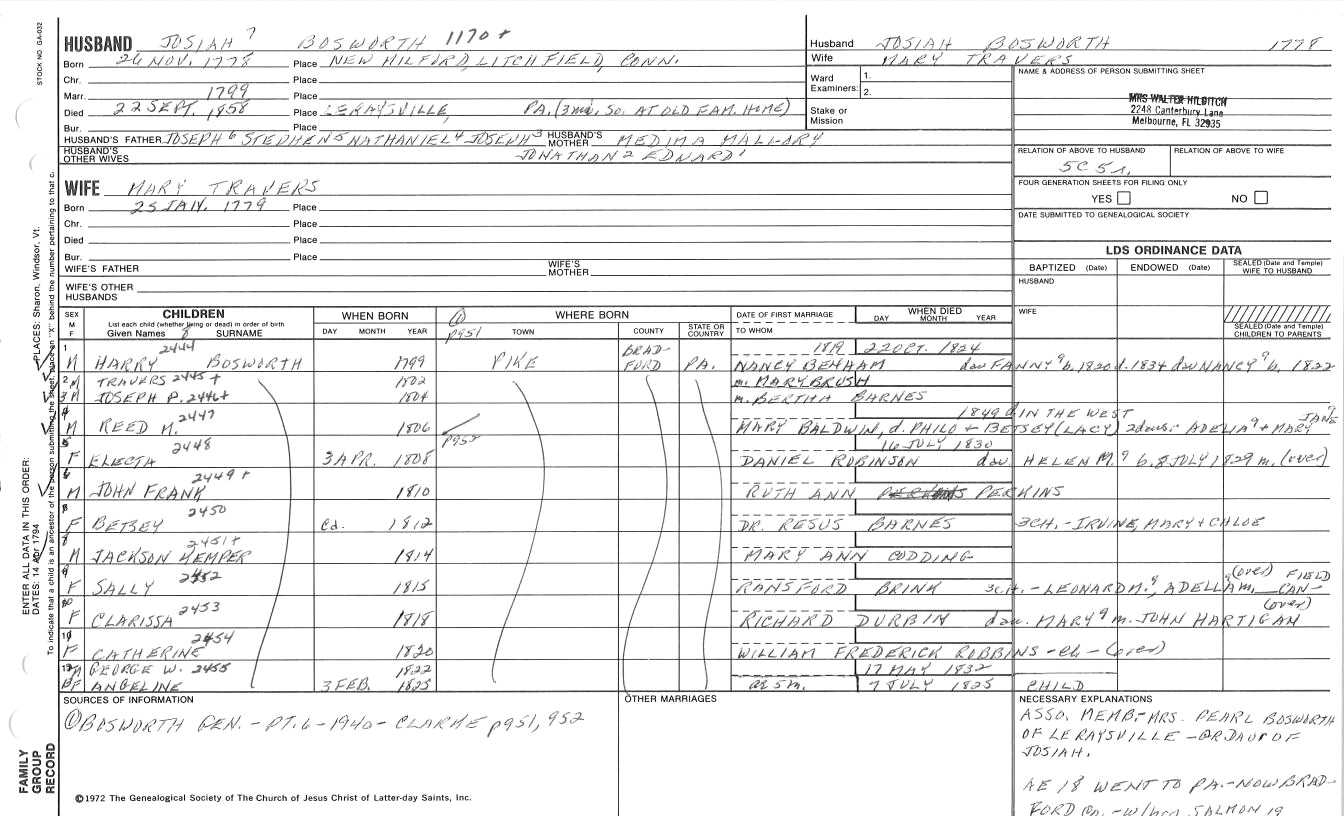 STOCK NO. GA-032
HUSBAND JOSIAH 7 BOSWORTH 1170 +
Born 26 NOV. 1778 Place NEW MILFORD, LITCHFIELD, CONN.
Chr. Place
Marr. 1799 Place
Died 22 SEPT. 1858 Place LERAYSVILLE, PA. (3 mi. So. AT OLD FAM. HOME)
Bur. Place
HUSBAND'S FATHER JOSEPH 6 STEPHEN 5 NATHANIEL 4 JOSEPH 3 HUSBAND'S MOTHER MEDIMA MALLARY
HUSBAND'S OTHER WIVES JONATHAN 2 EDWARD 1
Husband JOSIAH BOSWORTH 1778
Wife MARY TRAVERS
Ward Examiners: 1. 2.
Stake or Mission
NAME & ADDRESS OF PERSON SUBMITTING SHEET
MRS WALTER HILDITCH
2248 Canterbury Lane
Melbourne, FL 32935
RELATION OF ABOVE TO HUSBAND RELATION OF ABOVE TO WIFE
5C 5r.
FOUR GENERATION SHEETS FOR FILING ONLY
YES NO
DATE SUBMITTED TO GENEALOGICAL SOCIETY
WIFE MARY TRAVERS
Born 25 JAN. 1779 Place
Chr. Place
Died Place
Bur. Place
WIFE'S FATHER WIFE'S MOTHER
WIFE'S OTHER HUSBANDS
LDS ORDINANCE DATA
BAPTIZED (Date) ENDOWED (Date) SEALED (Date and Temple) WIFE TO HUSBAND
HUSBAND
WIFE
SEALED (Date and Temple) CHILDREN TO PARENTS
SEX M F CHILDREN List each child (whether living or dead) in order of birth Given Names 8 SURNAME
WHEN BORN DAY MONTH YEAR
① p951 WHERE BORN TOWN COUNTY STATE OR COUNTRY
DATE OF FIRST MARRIAGE TO WHOM
WHEN DIED DAY MONTH YEAR
1 M HARRY 2444 BOSWORTH 1799 PIKE BRADFORD PA. 1819 22 OCT. 1824 NANCY BENHAM dau FANNY 9 b. 1820 d. 1834 dau NANCY 9 b. 1822
2 M TRAVERS 2445 + 1802 m. MARY BRUSH
3 M JOSEPH P. 2446 + 1804 m. BERTHA BARNES
4 M REED M. 2447 1806 p952 1849 d IN THE WEST MARY BALDWIN, d. PHILO + BETSEY (LACY) 2 daus. ADELIA 9 + MARY JANE 9
5 F ELECTA 2448 3 APR. 1808 16 JULY 1830 DANIEL ROBINSON dau HELEN M. 9 b. 8 JULY 1829 m. (over)
6 M JOHN FRANK 2449 + 1810 RUTH ANN PERKINS
F BETSEY 2450 1812 DR. RESUS BARNES 3 CH. - IRVINE, MARY + CHLOE
M JACKSON KEMPER 2451 + 1814 MARY ANN CODDING
9 F SALLY 2452 1815 RANSFORD BRINK 3 CH. - LEONARD M. 9, ADELLA 9 m. CANFIELD (over)
10 F CLARISSA 2453 1818 RICHARD DURBIN dau. MARY 9 m. JOHN HARTIGAN (over)
11 F CATHERINE 2454 1820 WILLIAM FREDERICK ROBBINS - ch - (over)
12 M GEORGE W. 2455 1822 17 MAY 1832
13 F ANGELINE 3 FEB. 1825 at 5 m. 7 JULY 1825 CHILD
SOURCES OF INFORMATION
① BOSWORTH GEN. - PT. 6 - 1940 - CLARKE p951, 952
OTHER MARRIAGES
NECESSARY EXPLANATIONS
ASSO. MEMB. - MRS. PEARL BOSWORTH
OF LERAYSVILLE - GR DAU OF
JOSIAH.
AE 18 WENT TO PA. - NOW BRAD-
FORD Co. - w/ SALMON 19
©1972 The Genealogical Society of The Church of Jesus Christ of Latter-day Saints, Inc.
FAMILY GROUP RECORD
ENTER ALL DATA IN THIS ORDER:
DATES: 14 Apr 1794 PLACES: Sharon, Windsor, Vt.
To indicate that a child is an ancestor of the person submitting the sheet, place an "X" behind the number pertaining to that c.